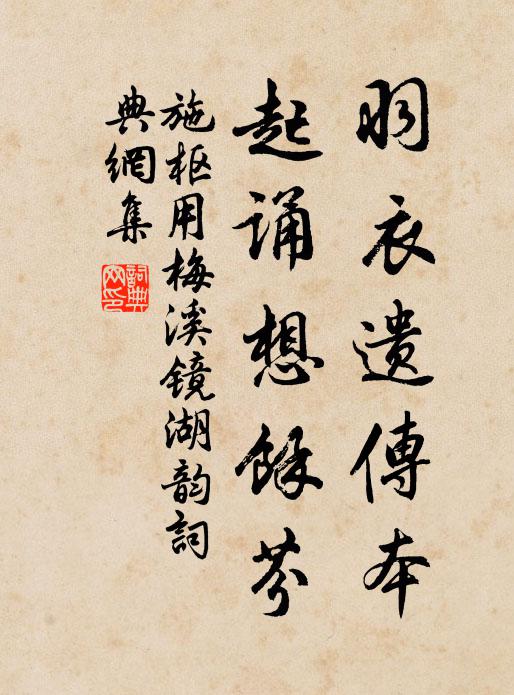 羽衣遗傳本
起诵想餘芬
施枢用梅溪镜湖韵詞
典網集
詞典
网印